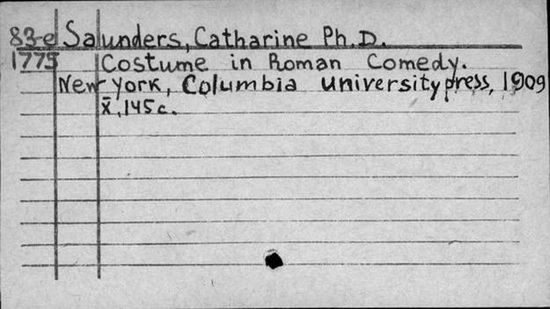 83-e Saunders, Catharine Ph.D.
1775 Costume in Roman Comedy.
New York, Columbia university press, 1909
X̄, 145 c.